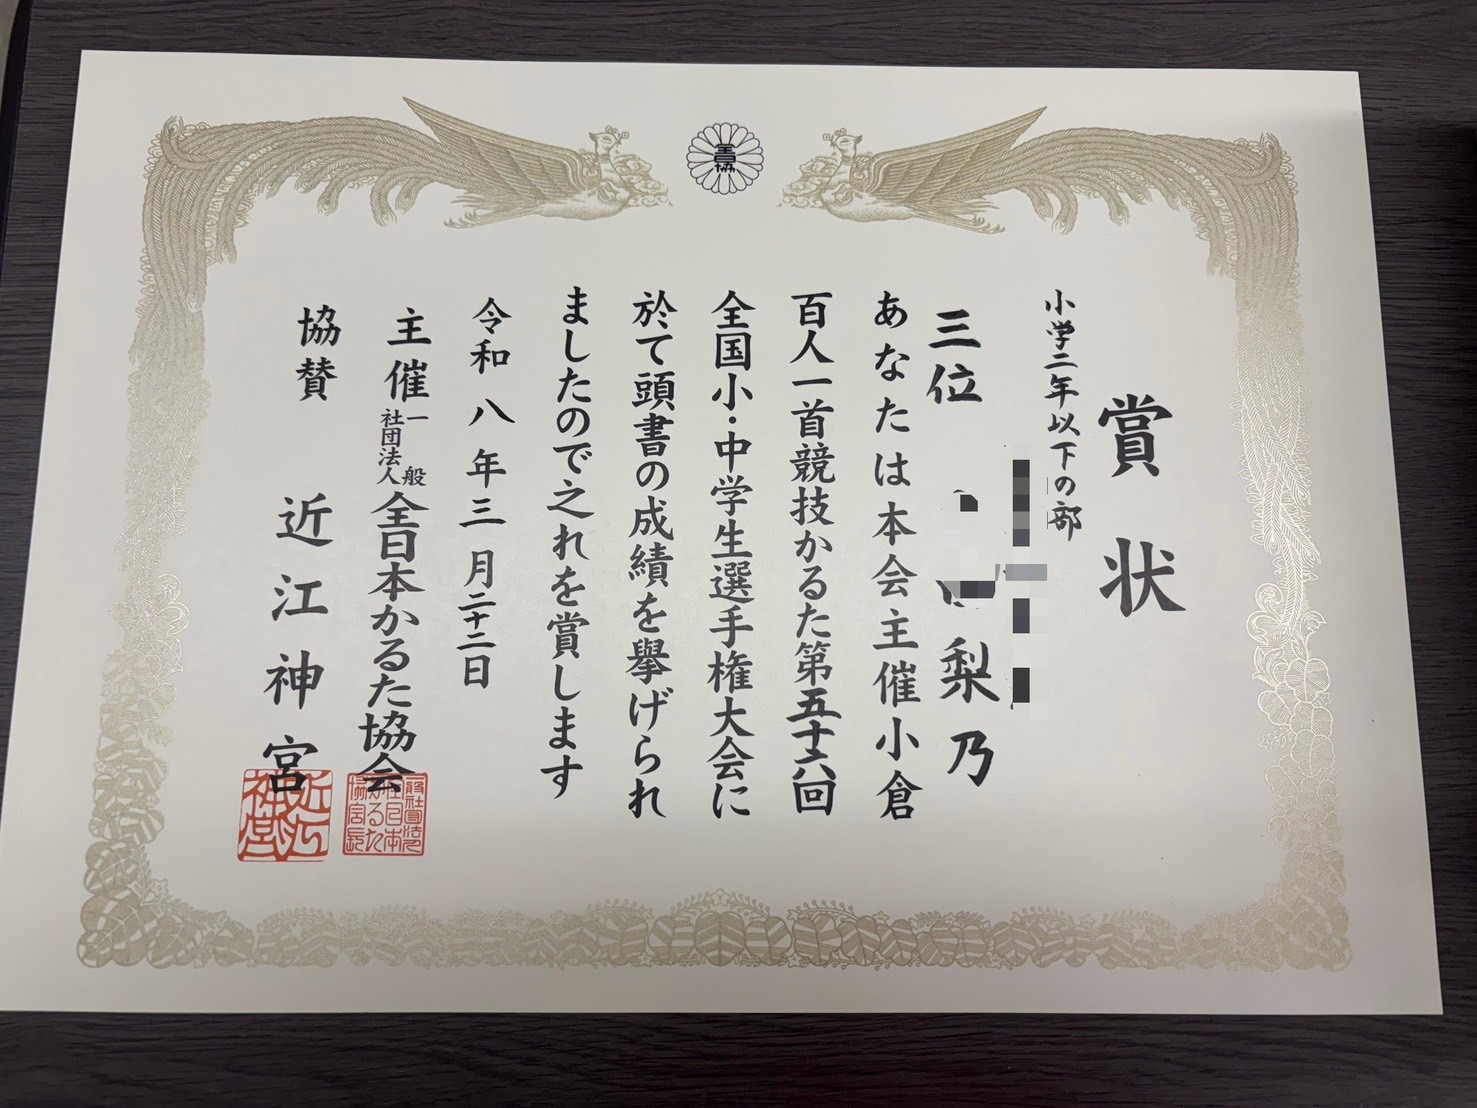 全日協
賞状
小学二年以下の部
三位 梨乃
あなたは本会主催小倉
百人一首競技かるた第五十六回
全国小・中学生選手権大会に
於て頭書の成績を挙げられ
ましたので之れを賞します
令和八年三月二十二日
主催 一般社団法人 全日本かるた協会
協賛 近江神宮